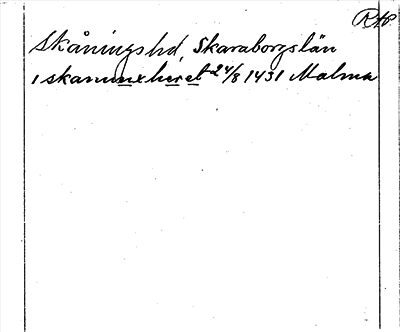 RAp
Skånings hd, Skaraborgs län
i skanunxheret 24/8 1431 Malma